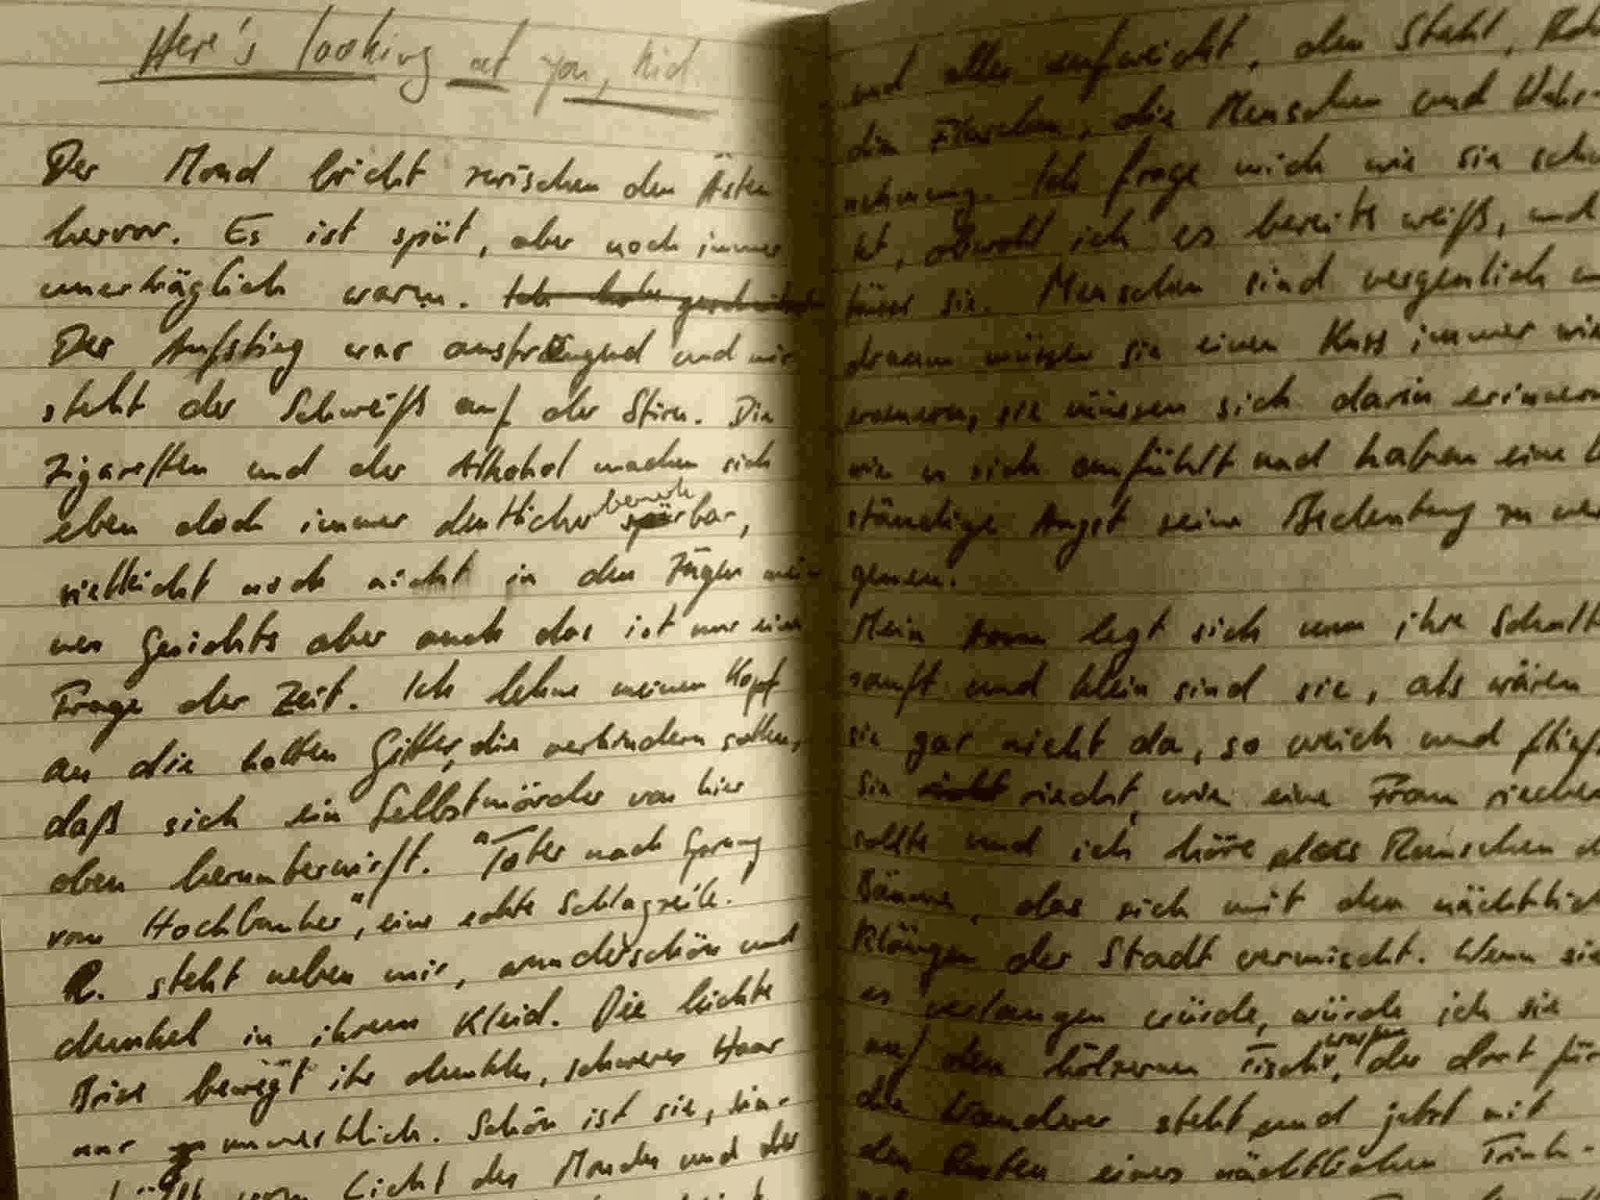 Here's looking at you, kid
Der Mond bricht zwischen den Ästen
hervor. Es ist spät, aber noch immer
unerträglich warm. Ich habe
Der Aufstieg war anstrengend und mir
steht der Schweiß auf der Stirn. Die
Zigaretten und der Alkohol machen sich
eben doch immer deutlicher bemerkbar,
vielleicht noch nicht in den Zügen mei-
nes Gesichts aber auch das ist nur eine
Frage der Zeit. Ich lehne meinen Kopf
an die kalten Gitter, die verhindern sollen,
daß sich ein Selbstmörder von hier
oben herunterwirft. "Toter nach Sprung
vom Hochbunker", eine echte Schlagzeile.
R. steht neben mir, wunderschön und
dunkel in ihrem Kleid. Die leichte
Brise bewegt ihr dunkles, schweres Haar
nur unmerklich. Schön ist sie,
vom Licht des Mondes und der
und alles aufweicht, den Stahl,
die Flaschen, die Menschen und Wahr-
nehmung. Ich frage mich wie sie
obwohl ich es bereits weiß, und
sie. Menschen sind vergesslich
darum müssen sie einen Kuss immer
erneuern, sie müssen sich daran erinnern
wie es sich anfühlt und haben eine
ständige Angst seine Bedeutung zu ver
gessen.
Mein Arm legt sich um ihre
sanft und klein sind sie, als wären
sie gar nicht da, so weich und
Sie riecht, wie eine Frau riechen
sollte und ich höre das Rauschen
Bäume, das sich mit den
Klängen der Stadt vermischt. Wenn sie
es verlangen würde, würde ich sie
auf den hölzernen Tisch werfen, der dort für
die Wanderer steht und jetzt mit
den Resten eines nächtlichen Trink-